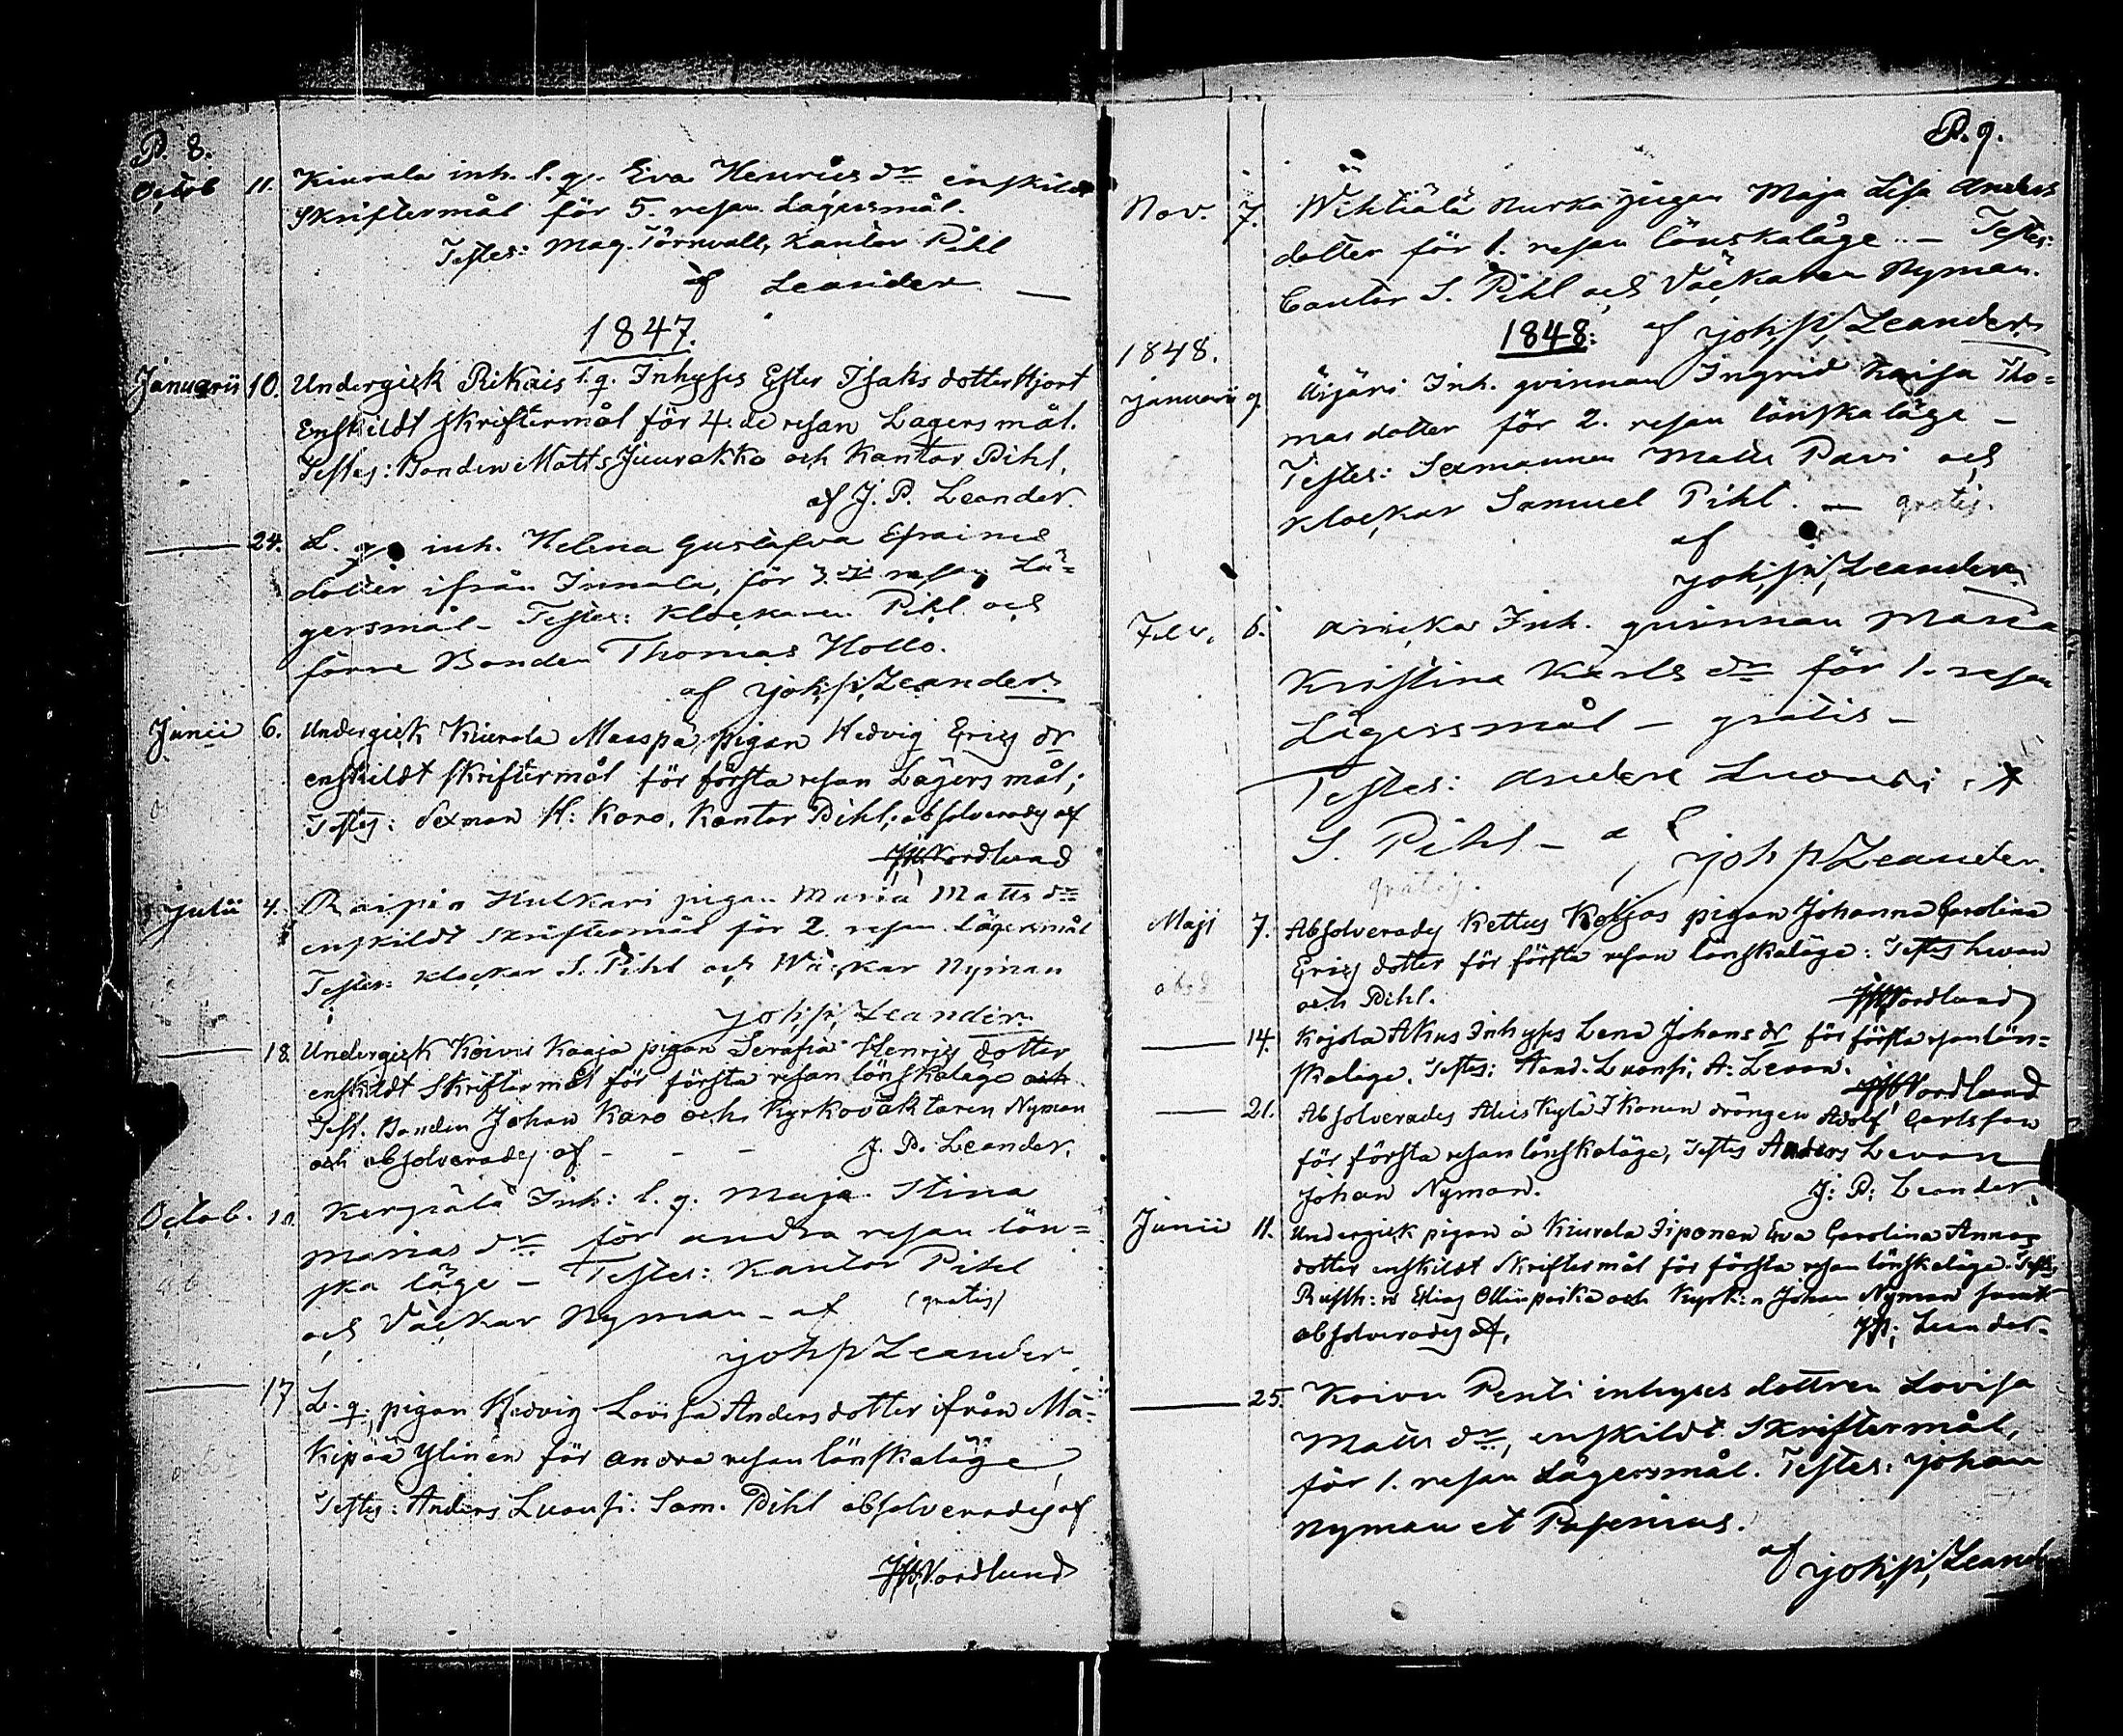 P. 8.
Octob 11. Kiurala inh. l. q. Eva Henricsdr enskildt
skriftermål för 5. resan Lägersmål.
Testes: Mag. Törnvall, Kantor Pihl
af Leander —
1847.
Januarii 10. Undergick Rikais l. q. Inhyses Ester Isaks dotter Hjort
Enskildt skriftermål för 4:de resan Lagers mål.
Testes: Bonden Matts Juurakko och Kantor Pihl,
af J. P. Leander.
— 24. L. q. inh. Helena Gustafva Efraims
dotter ifrån Inmala, för 3. resan Lä=
gersmål - Testes: Klockaren Pihl och
förre Bonden Thomas Hollo.
af Joh. P. Leander.
Junii 6. Undergick Kiurala Maaspä pigan Hedvig Erics dr
enskildt skriftermål för första resan Lägers mål;
Testes: Sexman H: Karo, Kantor Pihl; absolverades af
Nordlund
Julii 4. Raipio Hulkari pigan Maria Matts dr
enskildt skriftermål för 2. resan lägersmål
Testes: Klockar S. Pihl och Wäckar Nyman
Joh. P. Leander.
— 18. Undergick Koivu Kaaja pigan Serafia Henrics dotter
enskildt Skriftermål för första resan lönskaläge och
Test. Bonden Johan Karo och Kyrkoväktaren Nyman
och absolverades af - - - J. P. Leander.
Octob. 10. Kergiälä Inh: l. q. Maja Stina
Marias dr för andra resan lön=
ska läge - Testes: Kantor Pihl
och Väckar Nyman - af (gratis)
Joh P Leander
— 17 L. q. pigan Hedvig Lovisa Anders dotter ifrån Mä-
kipää Ylinen för andra resan lönskaläge,
Testes: Anders Luonsi: Sam. Pihl absolverades af
Nordlund
P. 9.
Nov. 7. Wihtiälä Nurka pigan Maja Lisa Anders
dotter för 1. resan lönskaläge. - Testes:
Cantor S. Pihl och Väckaren Nyman.
1848: af Joh. P. Leander
1848.
Januarii 9. Äijäri Inh. qvinnan Ingrid Kaisa Tho=
mas dotter för 2. resan lönskaläge -
Testes: Sexmannen Matts Pavi och
Klockar Samuel Pihl. — gratis.
af
Joh. P. Leander
Febr. 6. Inh. quinnan Maria
Kristina Karls dr för 1. resan
Lägersmål - gratis -
Testes: Anders Luonsi, et
S. Pihl - af Joh P Leander.
gratis.
Maji 7. Absolverades Kettus Koljas pigan Johanna Carolina
Erics dotter för första resan lönskaläge: Testes Levan
och Pihl. Nordlund
— 14. Kojola Ahus Inhyses Lena Johans dr för första resan löns=
kaläge. Testes: And. Luonsi, A. Levan.
Nordlund
— 21. Absolverades Ahus Kylä Ikonen drängen Adolf Carlsson
för första resan lönskaläge, Testes Anders Levan
Johan Nyman. J: P: Leander
Junii 11. Undergick pigan å Kiurala Iiponen Eva Carolina Annas
dotter enskildt Skriftermål för första resan lönskaläge. Testes
Rusth:n Elias Ollinpoika och Kyrk:n Johan Nyman samt
absolverades af, J. P. Leander.
— 25. Koivu Penti inhyses dottren Lovisa
Matts dr, enskildt Skriftermål,
för 1. resan Lägersmål. Testes: Johan
Nyman et Pasenius.
af Joh. P. Leander